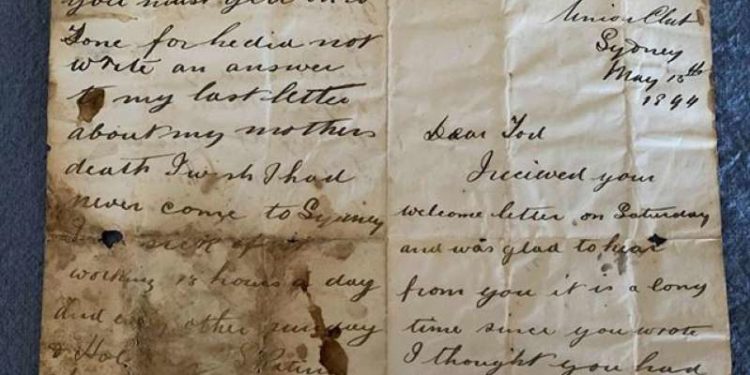 you must
for he did not
write an answer
to my last letter
about my mothers
death I wish I had
never come to Sydney
sick of
working 18 hours a day
and other sunday
&
Union Club
Sydney
May 15th
1894
Dear Tod
I recieved your
welcome letter on Saturday
and was glad to hear
from you it is a long
time since you wrote
I thought you had